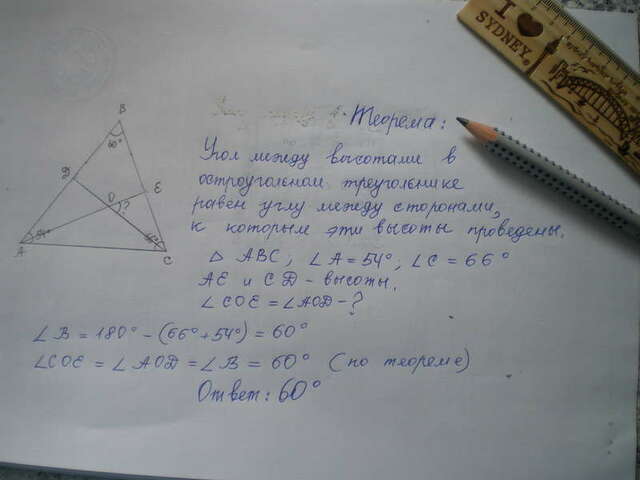 I ❤ SYDNEY
Теорема:
Угол между высотами в
остроугольном треугольнике
равен углу между сторонами,
к которым эти высоты проведены.
△ ABC; ∠A = 54°; ∠C = 66°
AE и CD - высоты.
∠COE = ∠AOD - ?
∠B = 180° - (66° + 54°) = 60°
∠COE = ∠AOD = ∠B = 60° (по теореме)
Ответ: 60°
B
60°
D
E
O
?
A
54°
66°
C